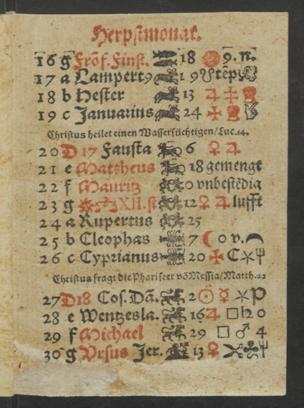 Herpstmonat.
16 g Frōf. Finst. 18 9. n.
17 a Lampert9 1 9
18 b Hester 13 ♃ ♀
19 c Januarius 24
Christus heilet einen Wassersüchtigen / Luc. 14.
20 D 17 Fausta 6 ♀ ♃
21 e Mattheus 18 gemengt
22 f Mauritz 0 vnbestēdig
23 g XII. st 12 ♀ ♃ lufft
24 a Rupertus 25
25 b Cleophas 7 ☾ 0 v.
26 c Cyprianus 20
Christus fragt die Phariseer vō Messia / Matth. 22
27 D 18 Cos. Dā. 2 ☉ ☿
28 e Wentzesla. 16 ♃ □ ♄ 0
29 f Michael 29 □ ♂ 4
30 g Vrsus Jer. 13 ♀